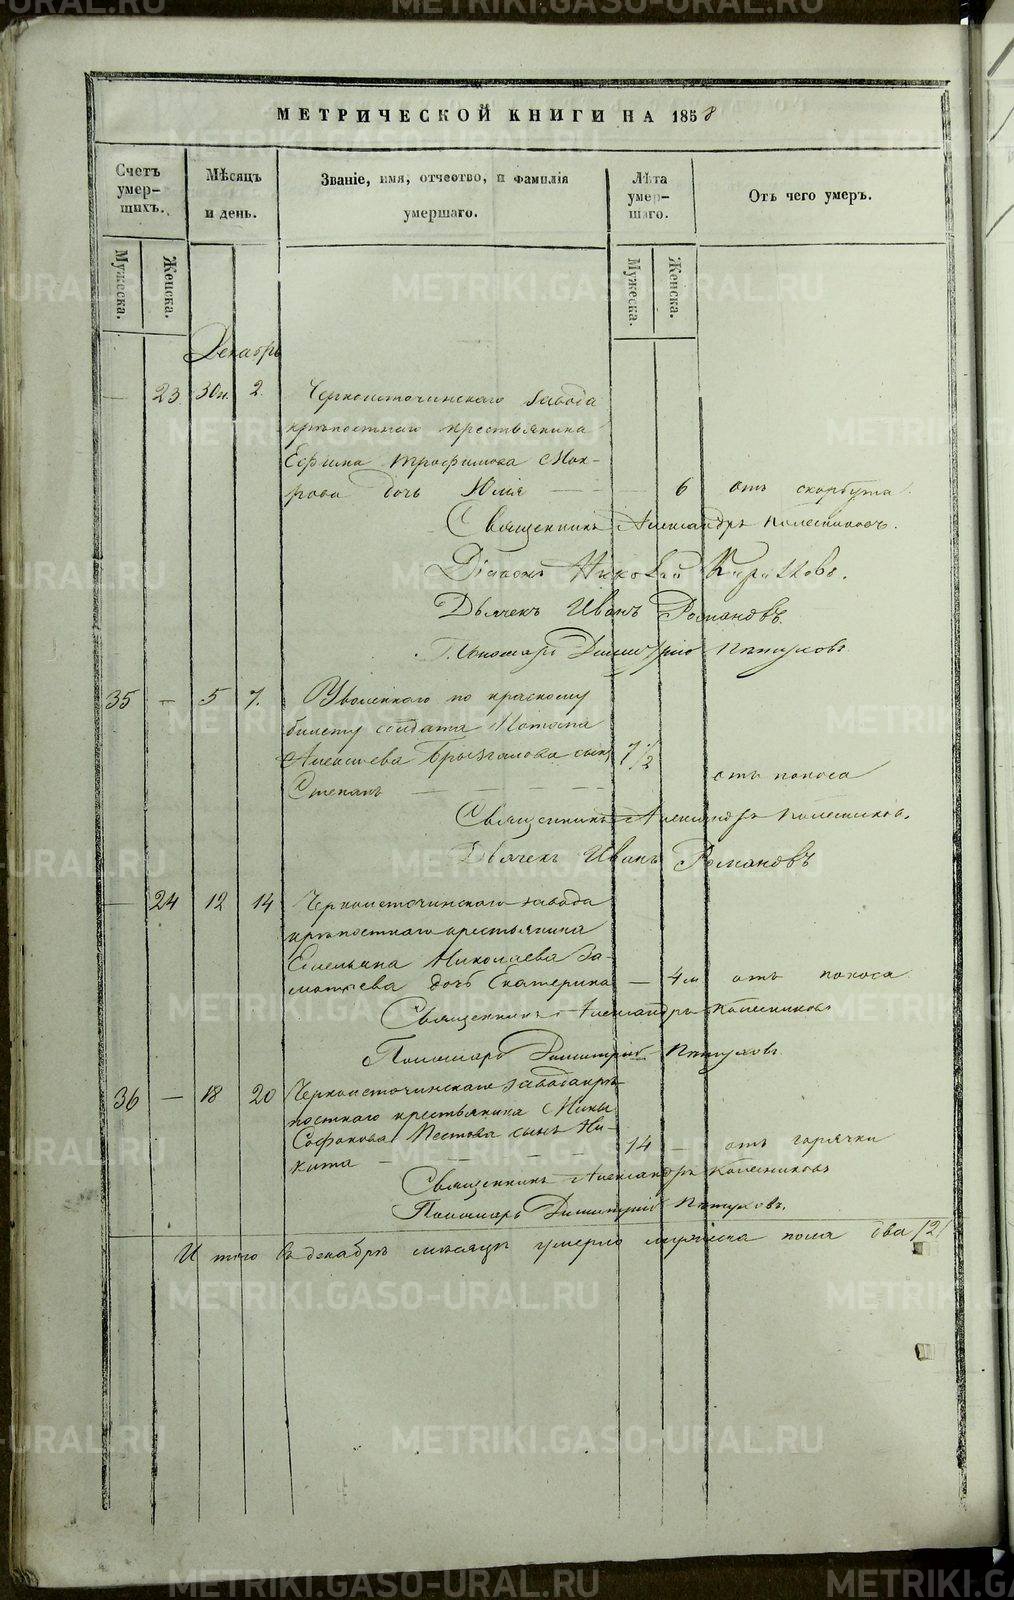 МЕТРИЧЕСКОЙ КНИГИ НА 1858
Счетъ умер-шихъ.
Мѣсяцъ и день.
Званіе, имя, отчество, и фамилія умершаго.
Лѣта умер-шаго.
Отъ чего умеръ.
Мужеска. Женска.
Мужеска. Женска.
Декабрь
— 23 30н. 2 Черноисточинскаго завода
крѣпостнаго крестьянина
Ефима Трофимова Мок-
рова дочь Юлія — — — 6 отъ скорбута.
Священникъ Александръ Колесниковъ.
Діаконъ Николай
Дьячекъ Иванъ Романовъ
Пономарь Димитрій Пѣтуховъ
35 — 5 7. Уволеннаго по красному
билету солдата Потапа
Алексѣева Брызгалова сынъ 7 1/2
Степанъ — — — — отъ поноса
Священникъ Александръ Колесниковъ.
Дьячекъ Иванъ Романовъ
— 24 12 14 Черноисточинскаго завода
крѣпостнаго крестьянина
Емельяна Николаева За-
дочь Екатерина — 4м отъ поноса
Священникъ Александръ Колесниковъ
Пономарь Димитрій Пѣтуховъ
36 — 18 20 Черноисточинскаго завода крѣ-
постнаго крестьянина Мины
Софонова Пестова сынъ Ни-
кита — — — — 14 — отъ горячки
Священникъ Александръ Колесниковъ
Пономарь Димитрій Пѣтуховъ.
И того въ декабрѣ мѣсяцѣ умерло мужеска пола два /2/
METRIKI.GASO-URAL.RU